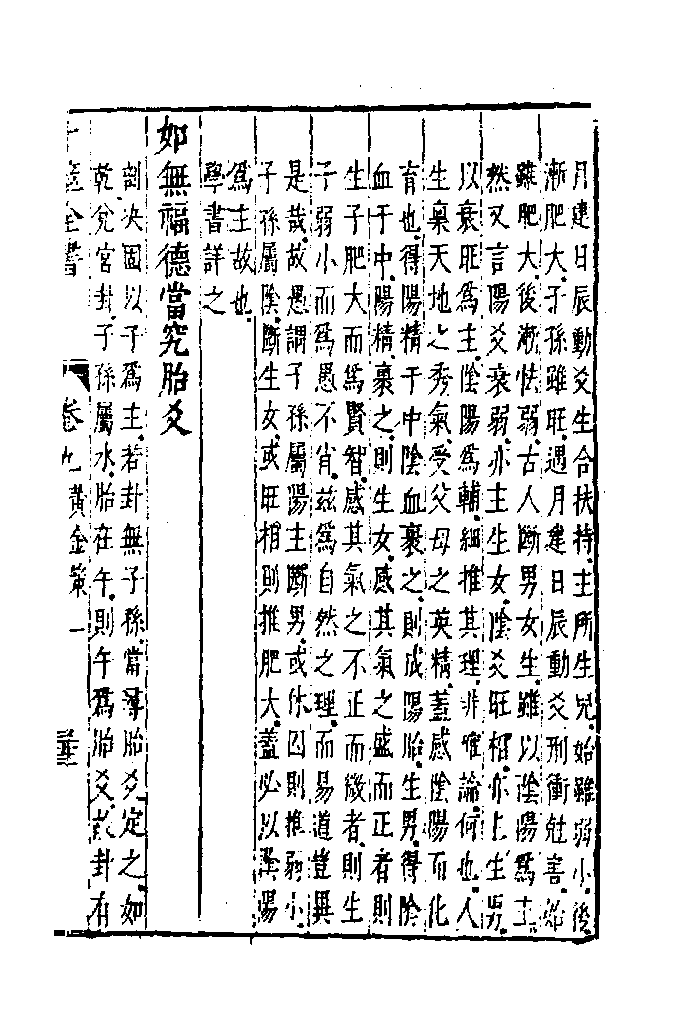 月建日辰動爻生合扶持主所生兒始雖弱小後
漸肥大子孫雖旺遇月建日辰動爻刑衝尅害始
雖肥大後漸怯弱古人斷男女生雖以陰陽爲主
然又言陽爻衰弱亦主生女陰爻旺相亦主生男
以衰旺爲主陰陽爲輔細推其理非確論何也人
生稟天地之秀氣受父母之英精蓋感陰陽而化
育也得陽精于中陰血裹之則成陽胎生男得陰
血于中陽精裹之則生女感其氣之盛而正者則
生子肥大而爲賢智感其氣之不正而微者則生
子弱小而爲愚不肖茲爲自然之理而易道豈異
是哉故愚謂子孫屬陽主斷男或休囚則推弱小
子孫屬陰斷生女或旺相則推肥大蓋必以陰陽
爲主故也
學書詳之
如無福德當究胎爻
剖決固以子爲主若卦無子孫當尋胎爻定之如
乾兌宮卦子孫屬水胎在午則午爲胎爻若卦有
全書 卷九 黃金策一